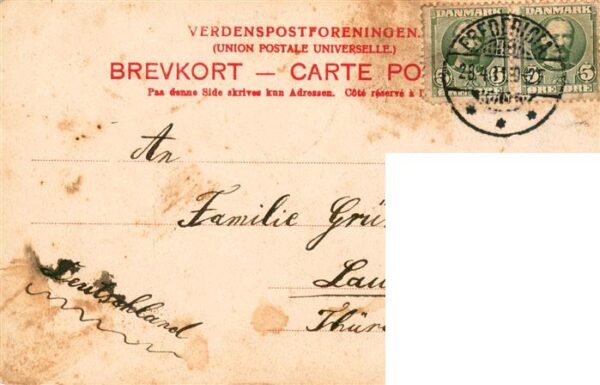 VERDENSPOSTFORENINGEN.
(UNION POSTALE UNIVERSELLE.)
BREVKORT — CARTE PO
Paa denne Side skrives kun Adressen. Côté réservé à l
DANMARK DANMARK
5 5
ØRE ØRE
An
Familie Grü
Lau
Thür
Deutschland